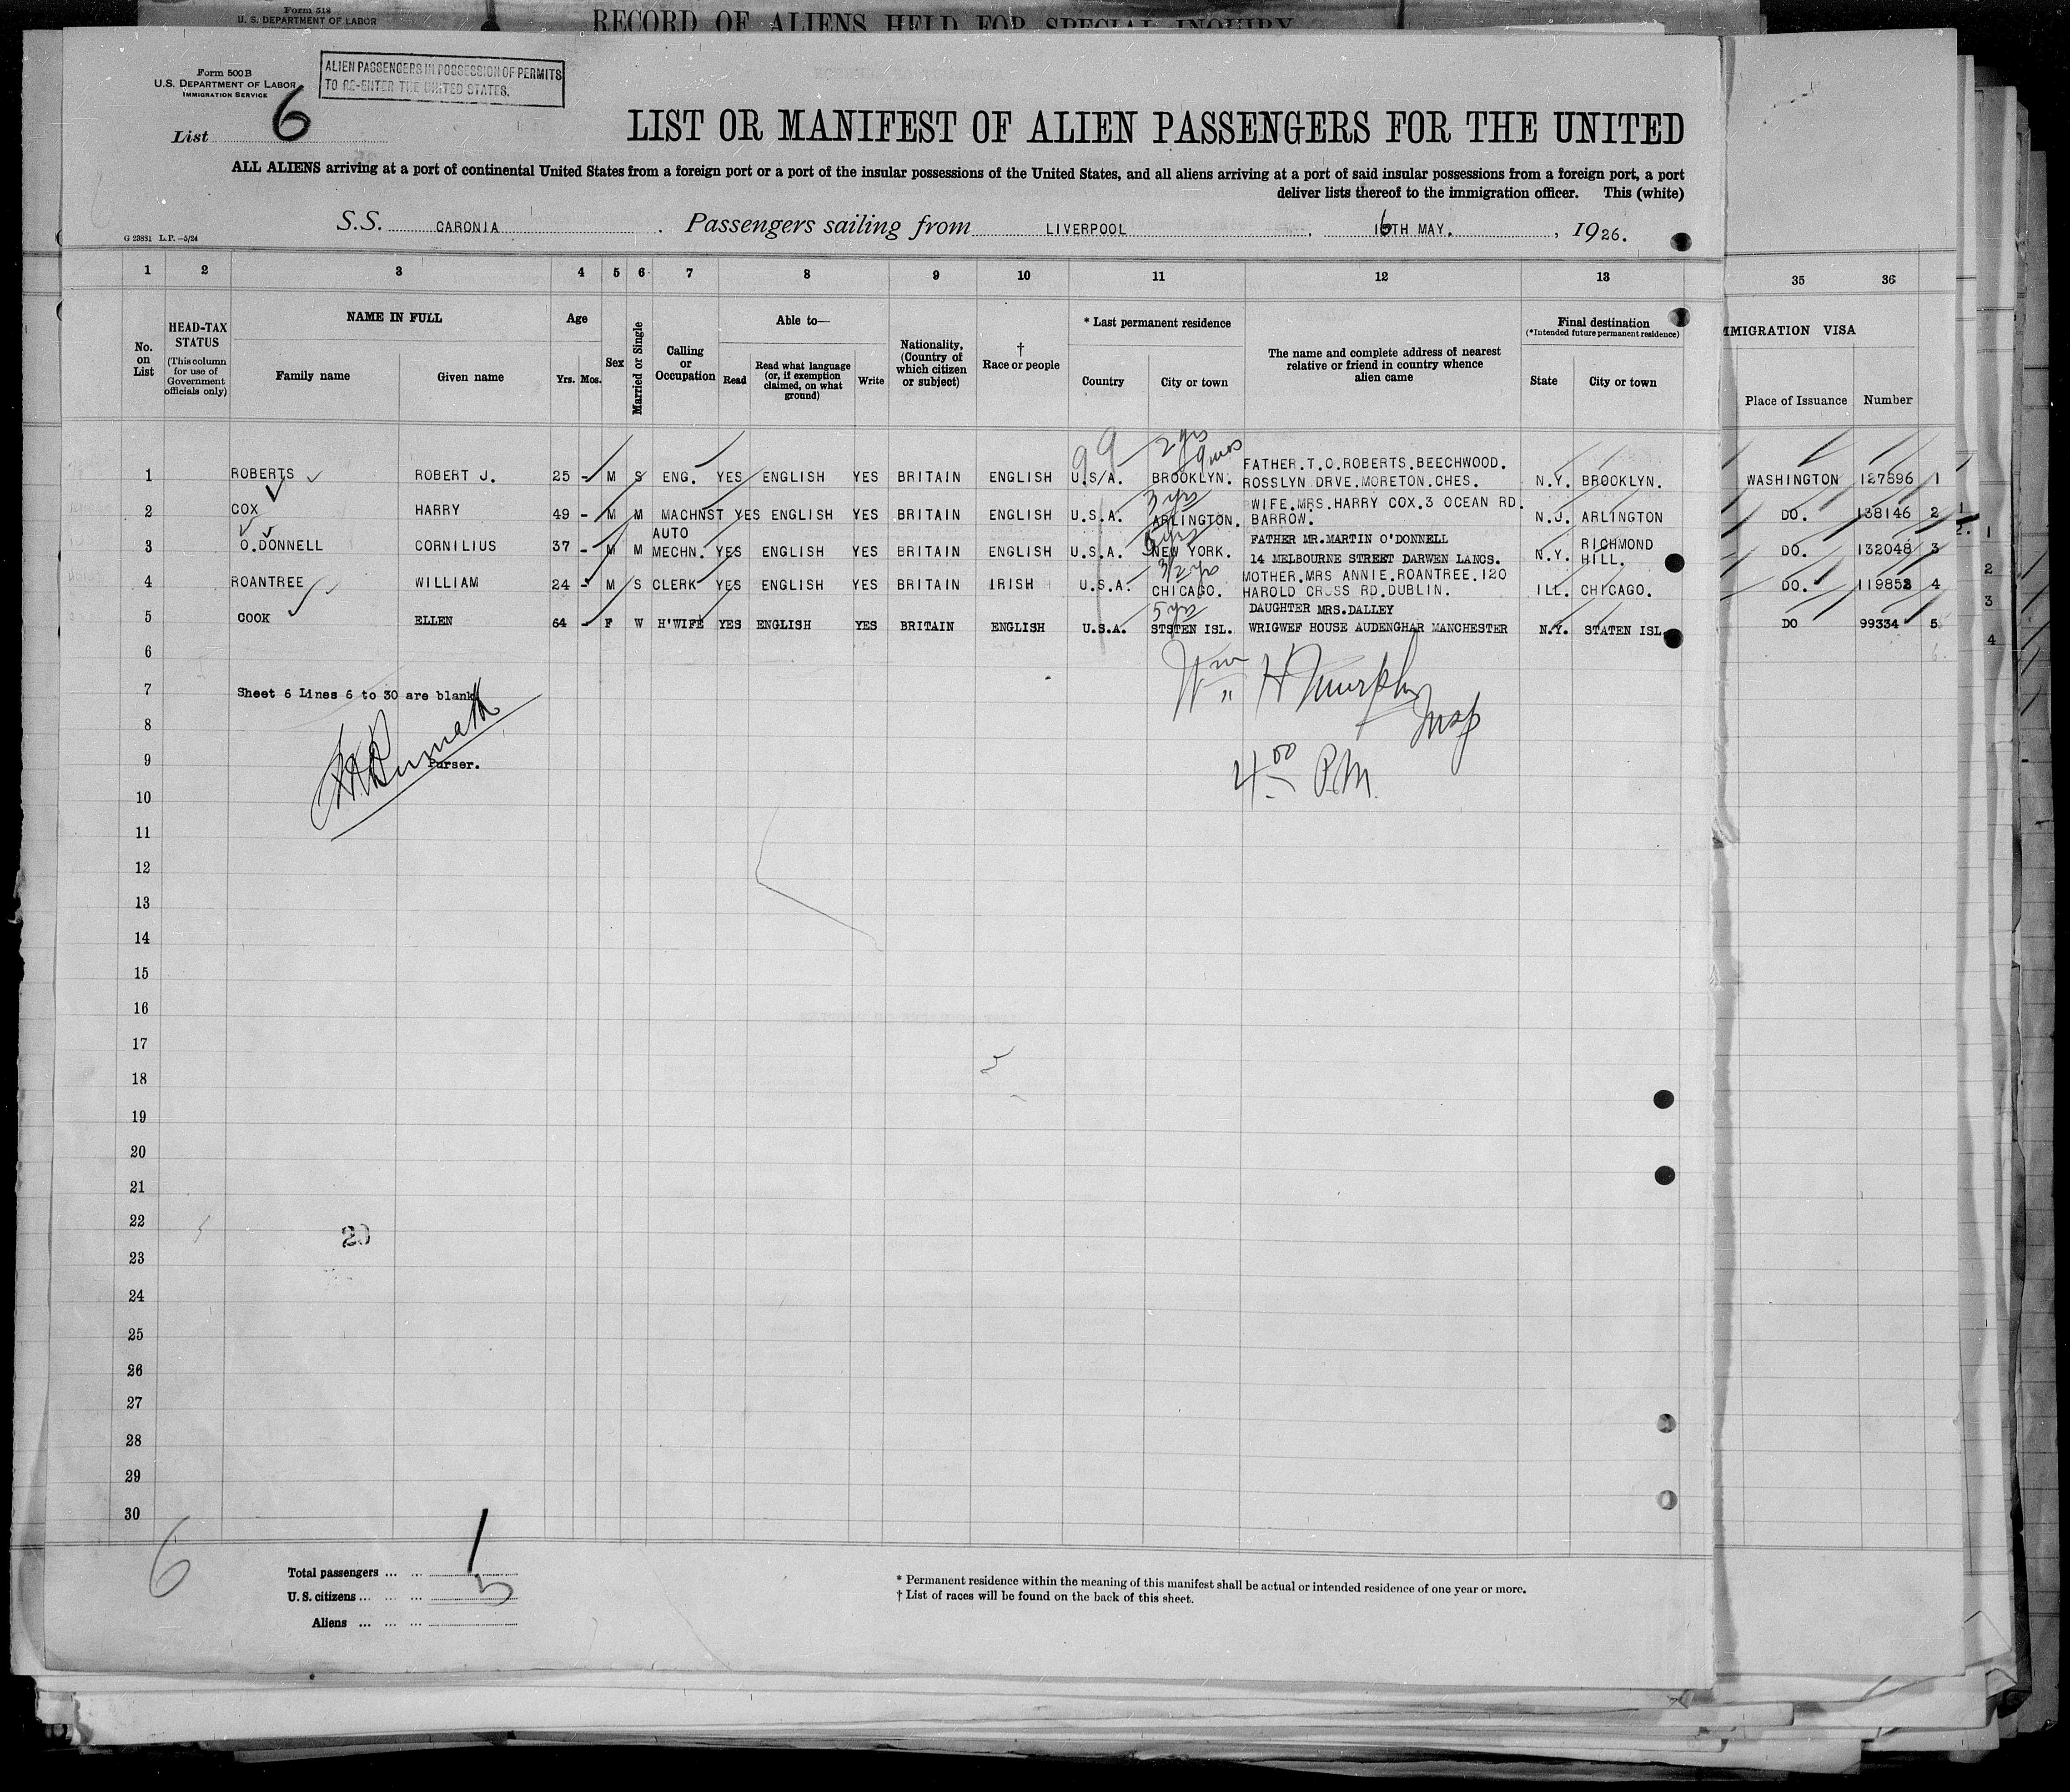 Form 518
U. S. DEPARTMENT OF LABOR
RECORD OF ALIENS HELD FOR SPECIAL INQUIRY
Form 500 B
U.S. DEPARTMENT OF LABOR
IMMIGRATION SERVICE
ALIEN PASSENGERS IN POSSESSION OF PERMITS
TO RE-ENTER THE UNITED STATES.
List 6
LIST OR MANIFEST OF ALIEN PASSENGERS FOR THE UNITED
ALL ALIENS arriving at a port of continental United States from a foreign port or a port of the insular possessions of the United States, and all aliens arriving at a port of said insular possessions from a foreign port, a port
deliver lists thereof to the immigration officer. This (white)
S.S. CARONIA . Passengers sailing from LIVERPOOL , 16TH MAY. , 1926.
G 23831 L.P.—5/24
1 2 3 4 5 6 7 8 9 10 11 12 13 35 36
No. on List
HEAD-TAX STATUS
(This column for use of Government officials only)
NAME IN FULL
Family name Given name
Age
Yrs. Mos.
Sex
Married or Single
Calling or Occupation
Able to—
Read
Read what language (or, if exemption claimed, on what ground)
Write
Nationality, (Country of which citizen or subject)
† Race or people
* Last permanent residence
Country City or town
The name and complete address of nearest relative or friend in country whence alien came
Final destination
(*Intended future permanent residence)
State City or town
IMMIGRATION VISA
Place of Issuance Number
99 2 yrs 9 mos
1 ROBERTS ROBERT J. 25 - M S ENG. YES ENGLISH YES BRITAIN ENGLISH U.S/A. BROOKLYN. FATHER.T.O.ROBERTS.BEECHWOOD. ROSSLYN DRVE.MORETON.CHES. N.Y. BROOKLYN. WASHINGTON 127896 1
3 yrs
2 COX HARRY 49 - M M MACHNST YES ENGLISH YES BRITAIN ENGLISH U.S.A. ARLINGTON. WIFE.MRS.HARRY COX.3 OCEAN RD. BARROW. N.J. ARLINGTON DO. 138146 2
3 O.DONNELL CORNILIUS 37 - M M AUTO MECHN. YES ENGLISH YES BRITAIN ENGLISH U.S.A. NEW YORK. FATHER MR.MARTIN O'DONNELL 14 MELBOURNE STREET DARWEN LANCS. N.Y. RICHMOND HILL. DO. 132048 3
3 1/2 yrs
4 ROANTREE WILLIAM 24 - M S CLERK YES ENGLISH YES BRITAIN IRISH U.S.A. CHICAGO. MOTHER.MRS ANNIE.ROANTREE.120 HAROLD CROSS RD.DUBLIN. ILL. CHICAGO. DO. 119853 4
5 yrs
5 COOK ELLEN 64 - F W H'WIFE YES ENGLISH YES BRITAIN ENGLISH U.S.A. STSTEN ISL. DAUGHTER MRS.DALLEY WRIGWEF HOUSE AUDENGHAR MANCHESTER N.Y. STATEN ISL. DO 99334 5
6
7 Sheet 6 Lines 6 to 30 are blank
Wm H Murphy
Insp
8
9 Purser.
4 00 P.M.
10
11
12
13
14
15
16
17
18
19
20
21
22
20
23
24
25
26
27
28
29
30
6
Total passengers ... ...
U. S. citizens ... ... ...
Aliens ... ... ...
1
5
* Permanent residence within the meaning of this manifest shall be actual or intended residence of one year or more.
† List of races will be found on the back of this sheet.
1
2
3
4